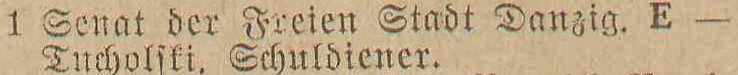 1 Senat der Freien Stadt Danzig. E —
Tucholski, Schuldiener.